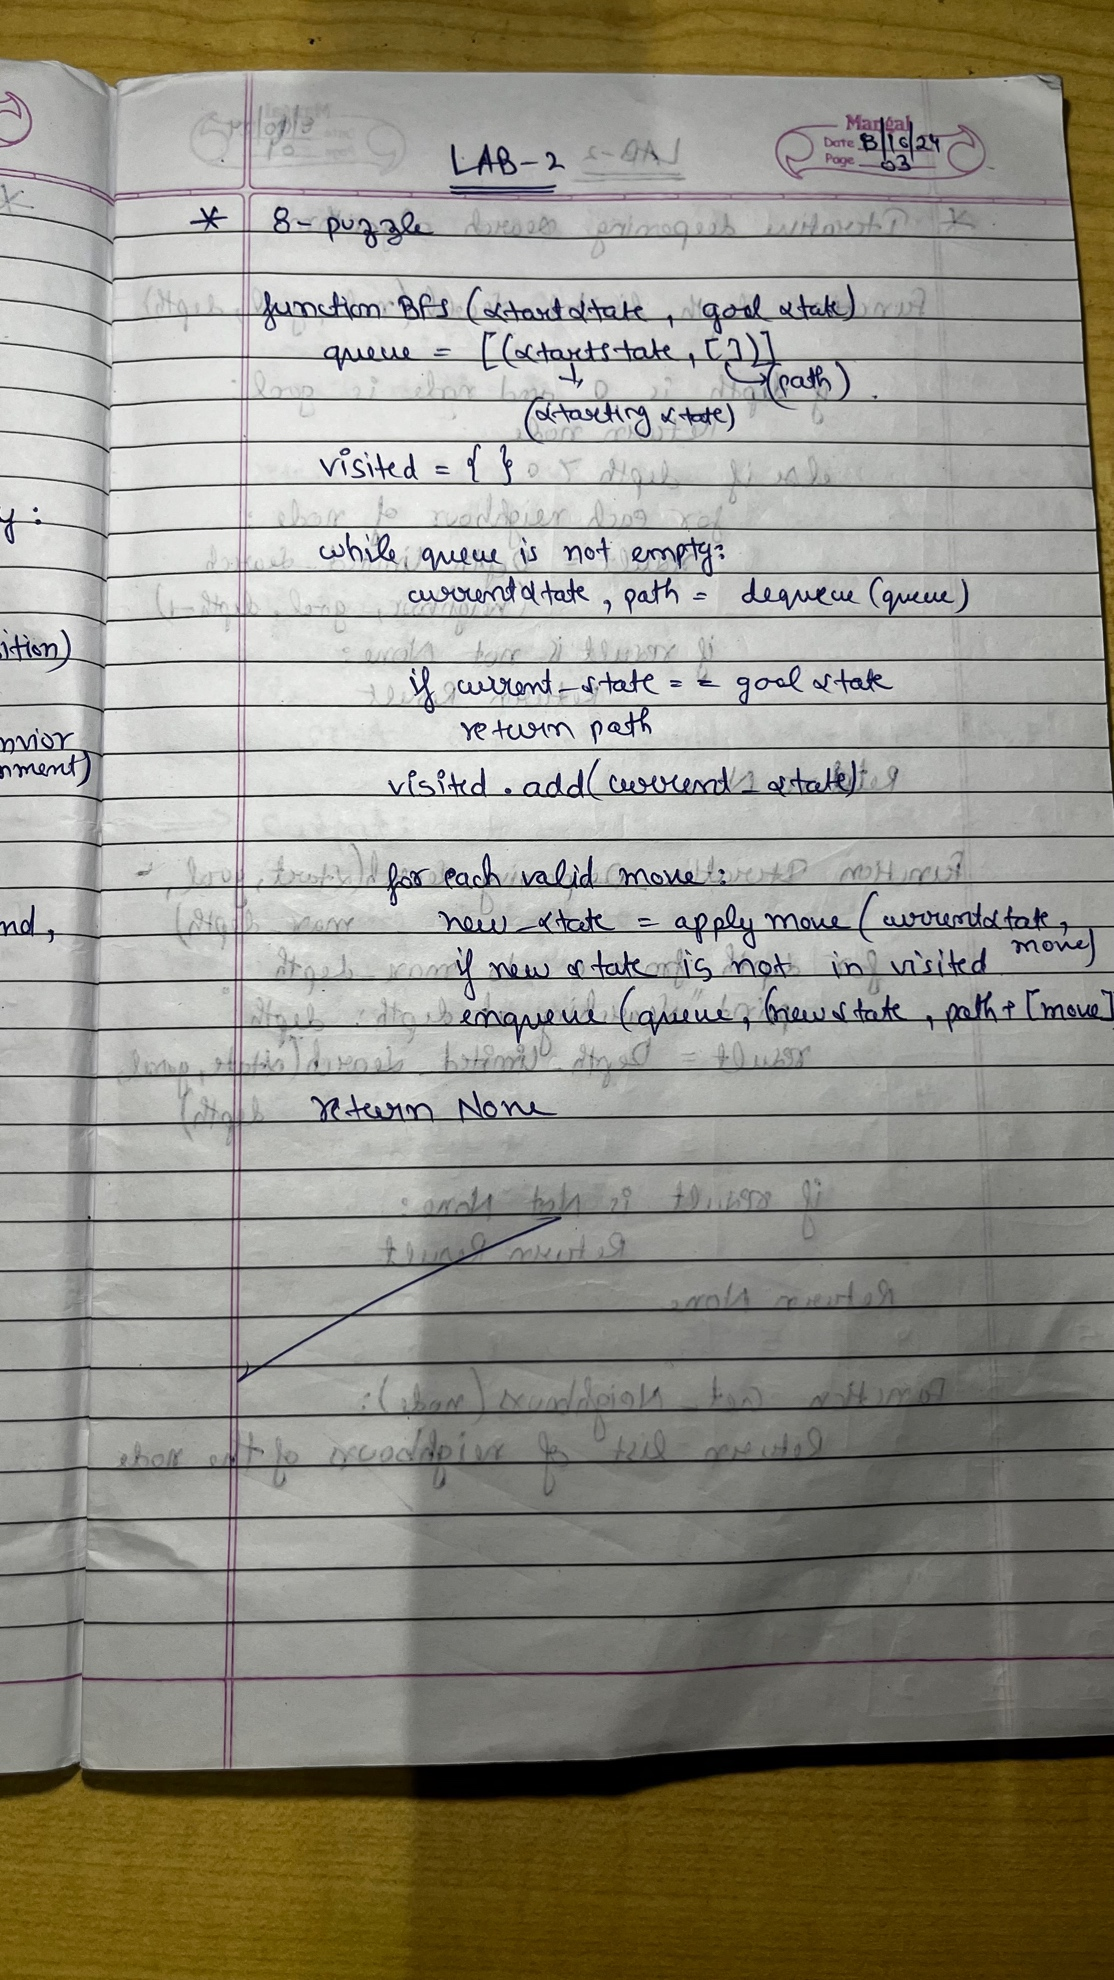 Mangal
Date 8/10/24
Page 03
LAB-2
* 8-puzzle
function BFS (startstate, goal state)
queue = [(startstate, [])]
(path)
(starting state)
visited = { }
while queue is not empty:
currentstate, path = dequeue (queue)
if current-state == goal state
return path
visited.add(current_state)
for each valid move:
new_state = apply move (currentstate,
move)
if new state is not in visited
enqueue (queue, (newstate, path + [move]
return None
y:
ition)
nvior
nment)
nd,